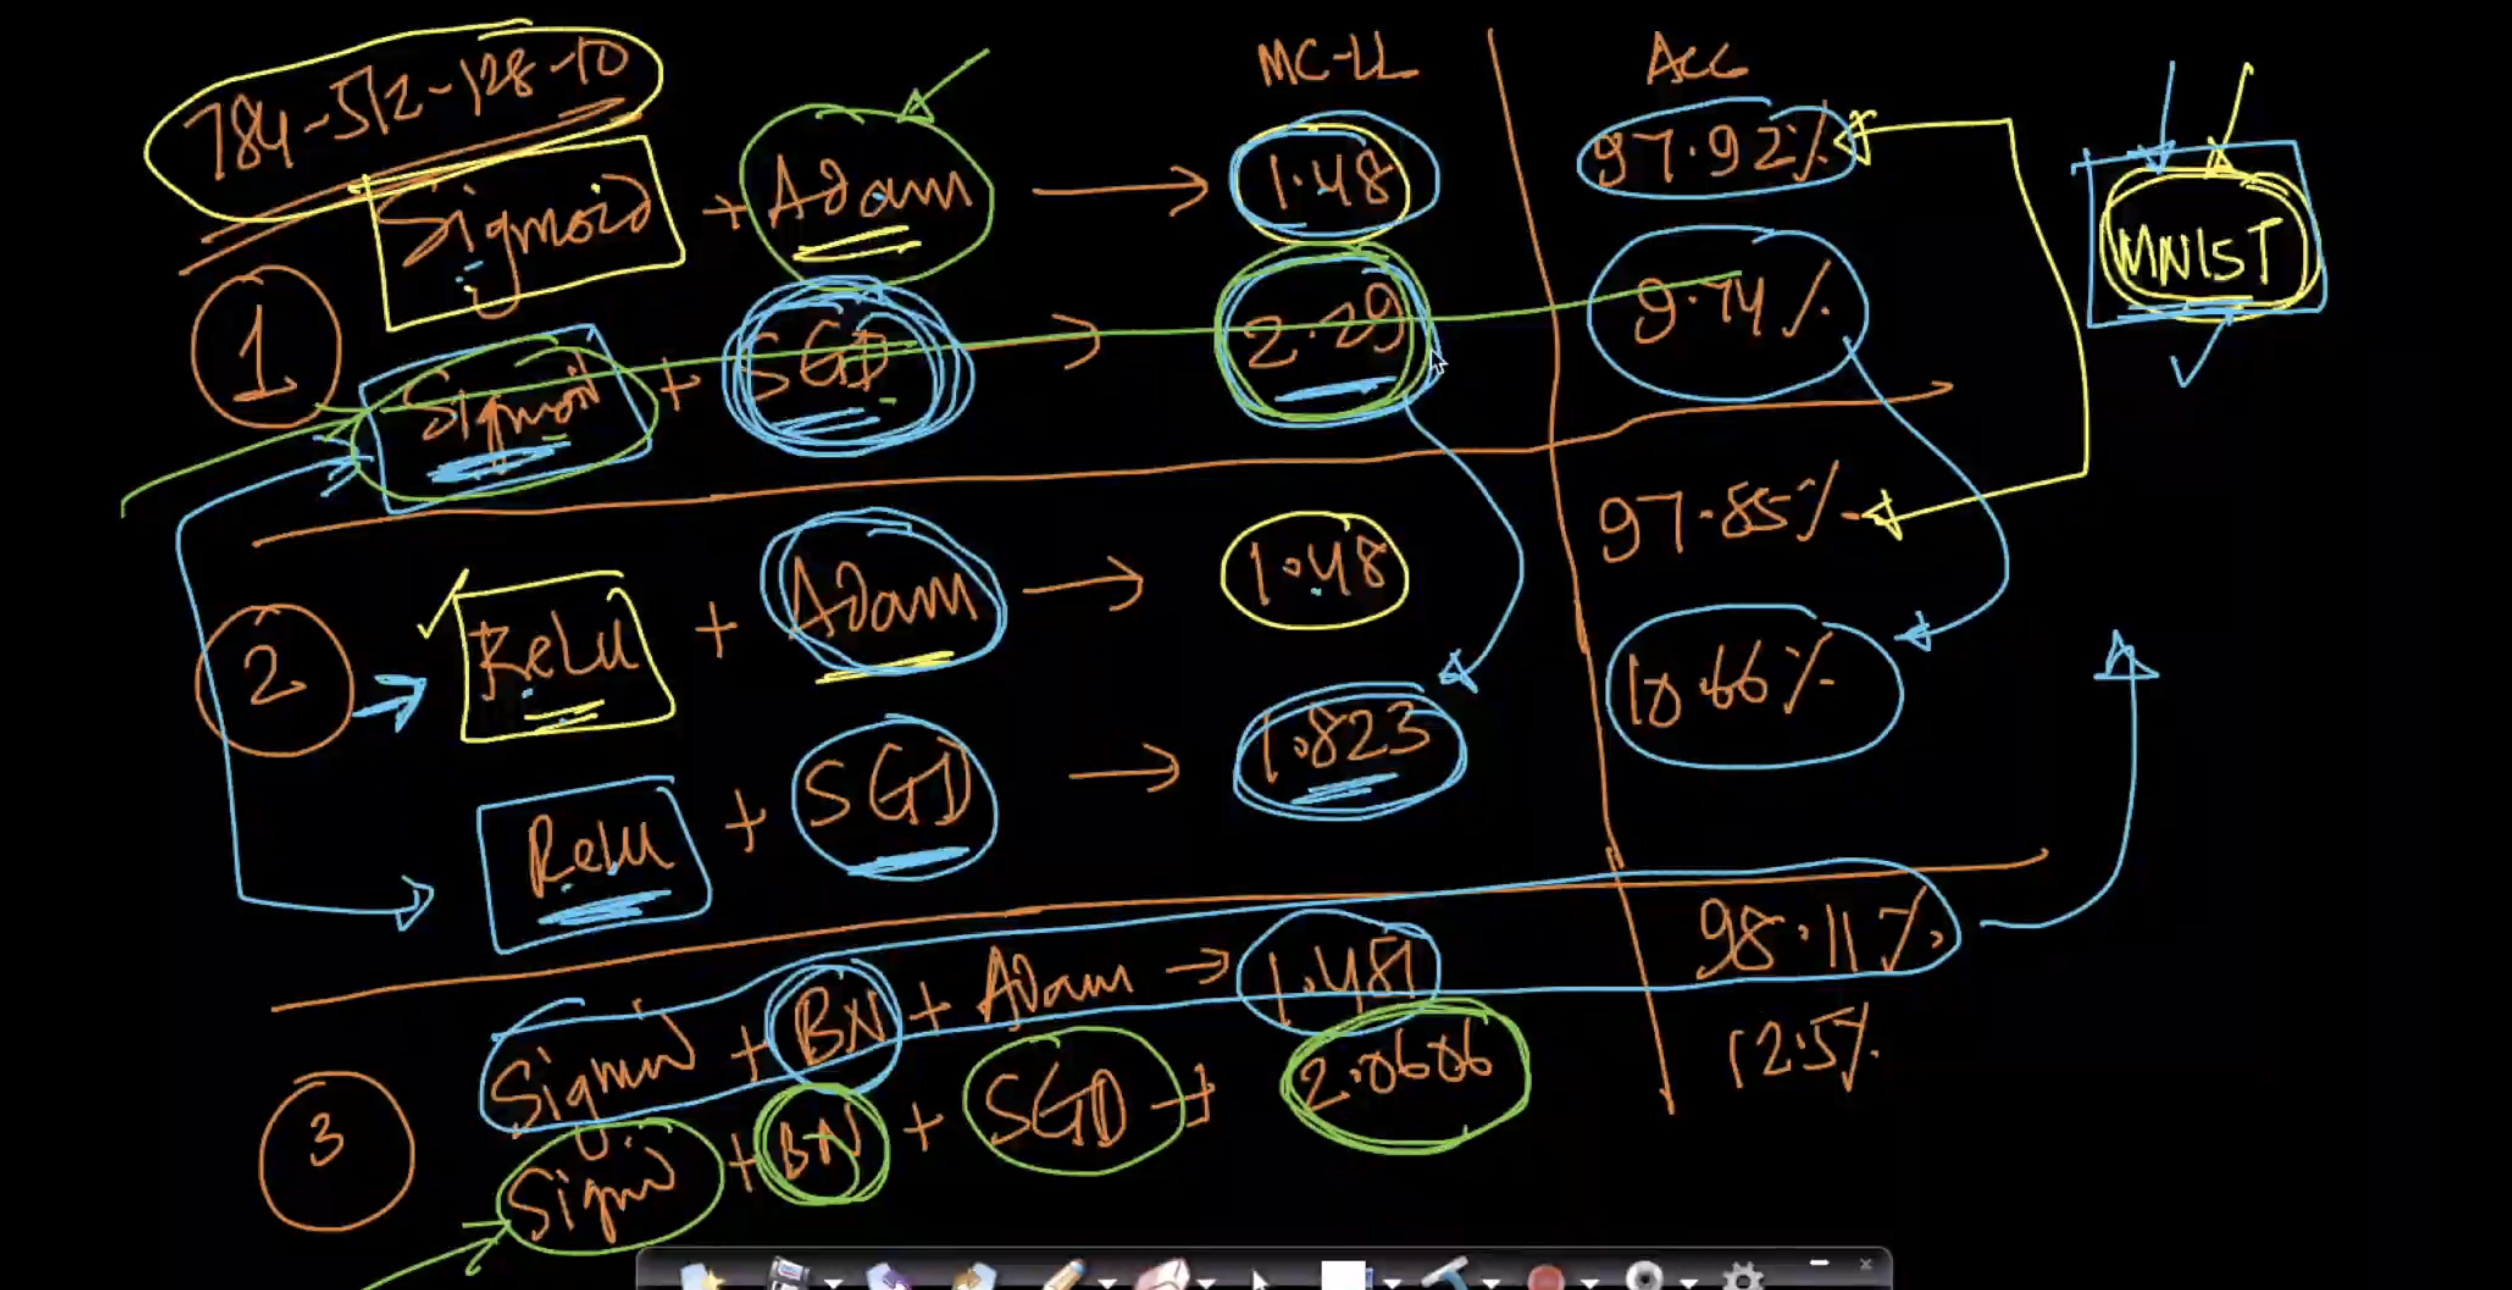 784-512-128-10
MC-LL
ACC
MNIST
1
Sigmoid + Adam → 1.48 97.92%
Sigmoid + SGD → 2.29 9.74%
2
ReLU + Adam → 1.48 97.85%
Relu + SGD → 1.823 10.66%
3
+ BN + Adam → 1.481 98.11%
+ BN + SGD → 2.0606 12.5%